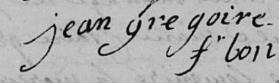 jean gre goire.
f" bon